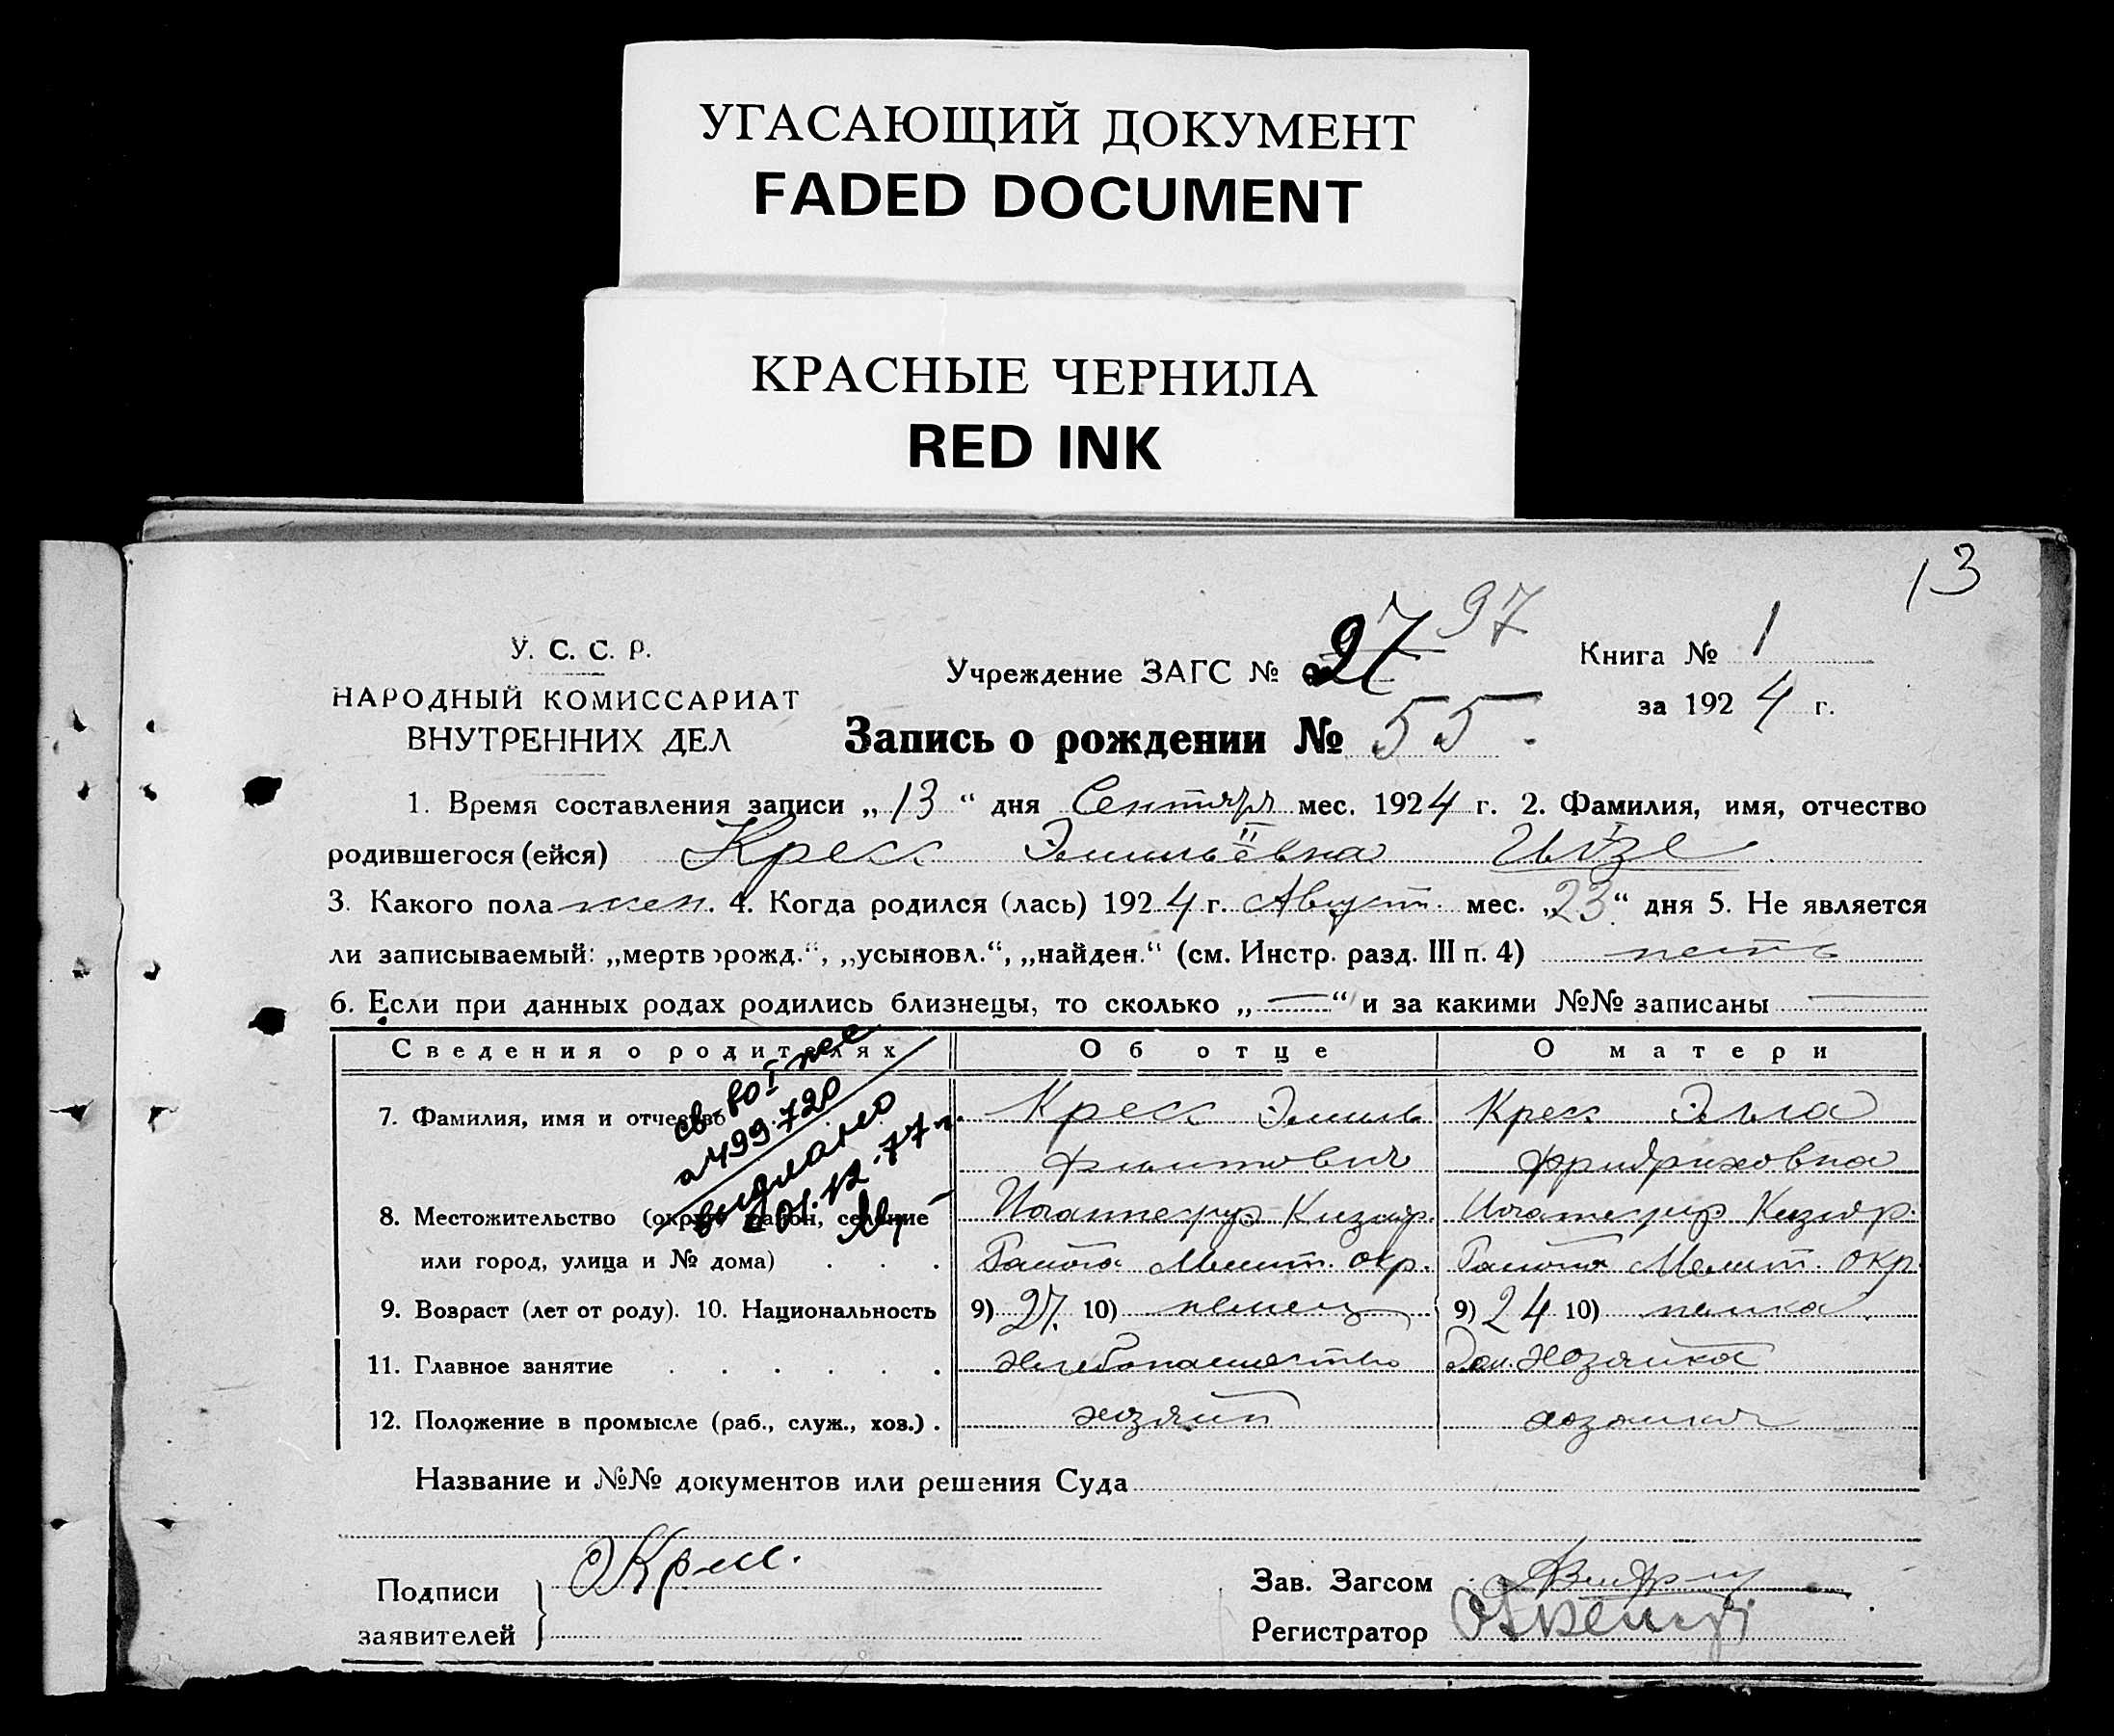 УГАСАЮЩИЙ ДОКУМЕНТ
FADED DOCUMENT
КРАСНЫЕ ЧЕРНИЛА
RED INK
13
У. С. С. Р.
НАРОДНЫЙ КОМИССАРИАТ
ВНУТРЕННИХ ДЕЛ
Учреждение ЗАГС № 27 97
Книга № 1
за 1924 г.
Запись о рождении № 55.
1. Время составления записи „13“ дня Сентября мес. 1924 г. 2. Фамилия, имя, отчество
родившегося (ейся) Кресс Эмильевна II Ильзе I
3. Какого пола жен. 4. Когда родился (лась) 1924 г. Август. мес. „23“ дня 5. Не является
ли записываемый: „мертворожд.“, „усыновл.“, „найден.“ (см. Инстр. разд. III п. 4) нетъ
6. Если при данных родах родились близнецы, то сколько „—“ и за какими №№ записаны —
Сведения о родителях Об отце О матери
7. Фамилия, имя и отчество Кресс Эмиль Кресс Элла
Фридриховна
св-во I
499720
выдано
8. Местожительство (округ, район, селение
или город, улица и № дома) . . . окр. окр.
9. Возраст (лет от роду). 10. Национальность 9) 27. 10) немец 9) 24 10) немка
11. Главное занятие . . . . . . Хлебопашество Дом. Хозяйка
12. Положение в промысле (раб., служ., хоз.) . хозяин хозяйка
Название и №№ документов или решения Суда
Подписи
заявителей
Кресс.
Зав. Загсом
Регистратор